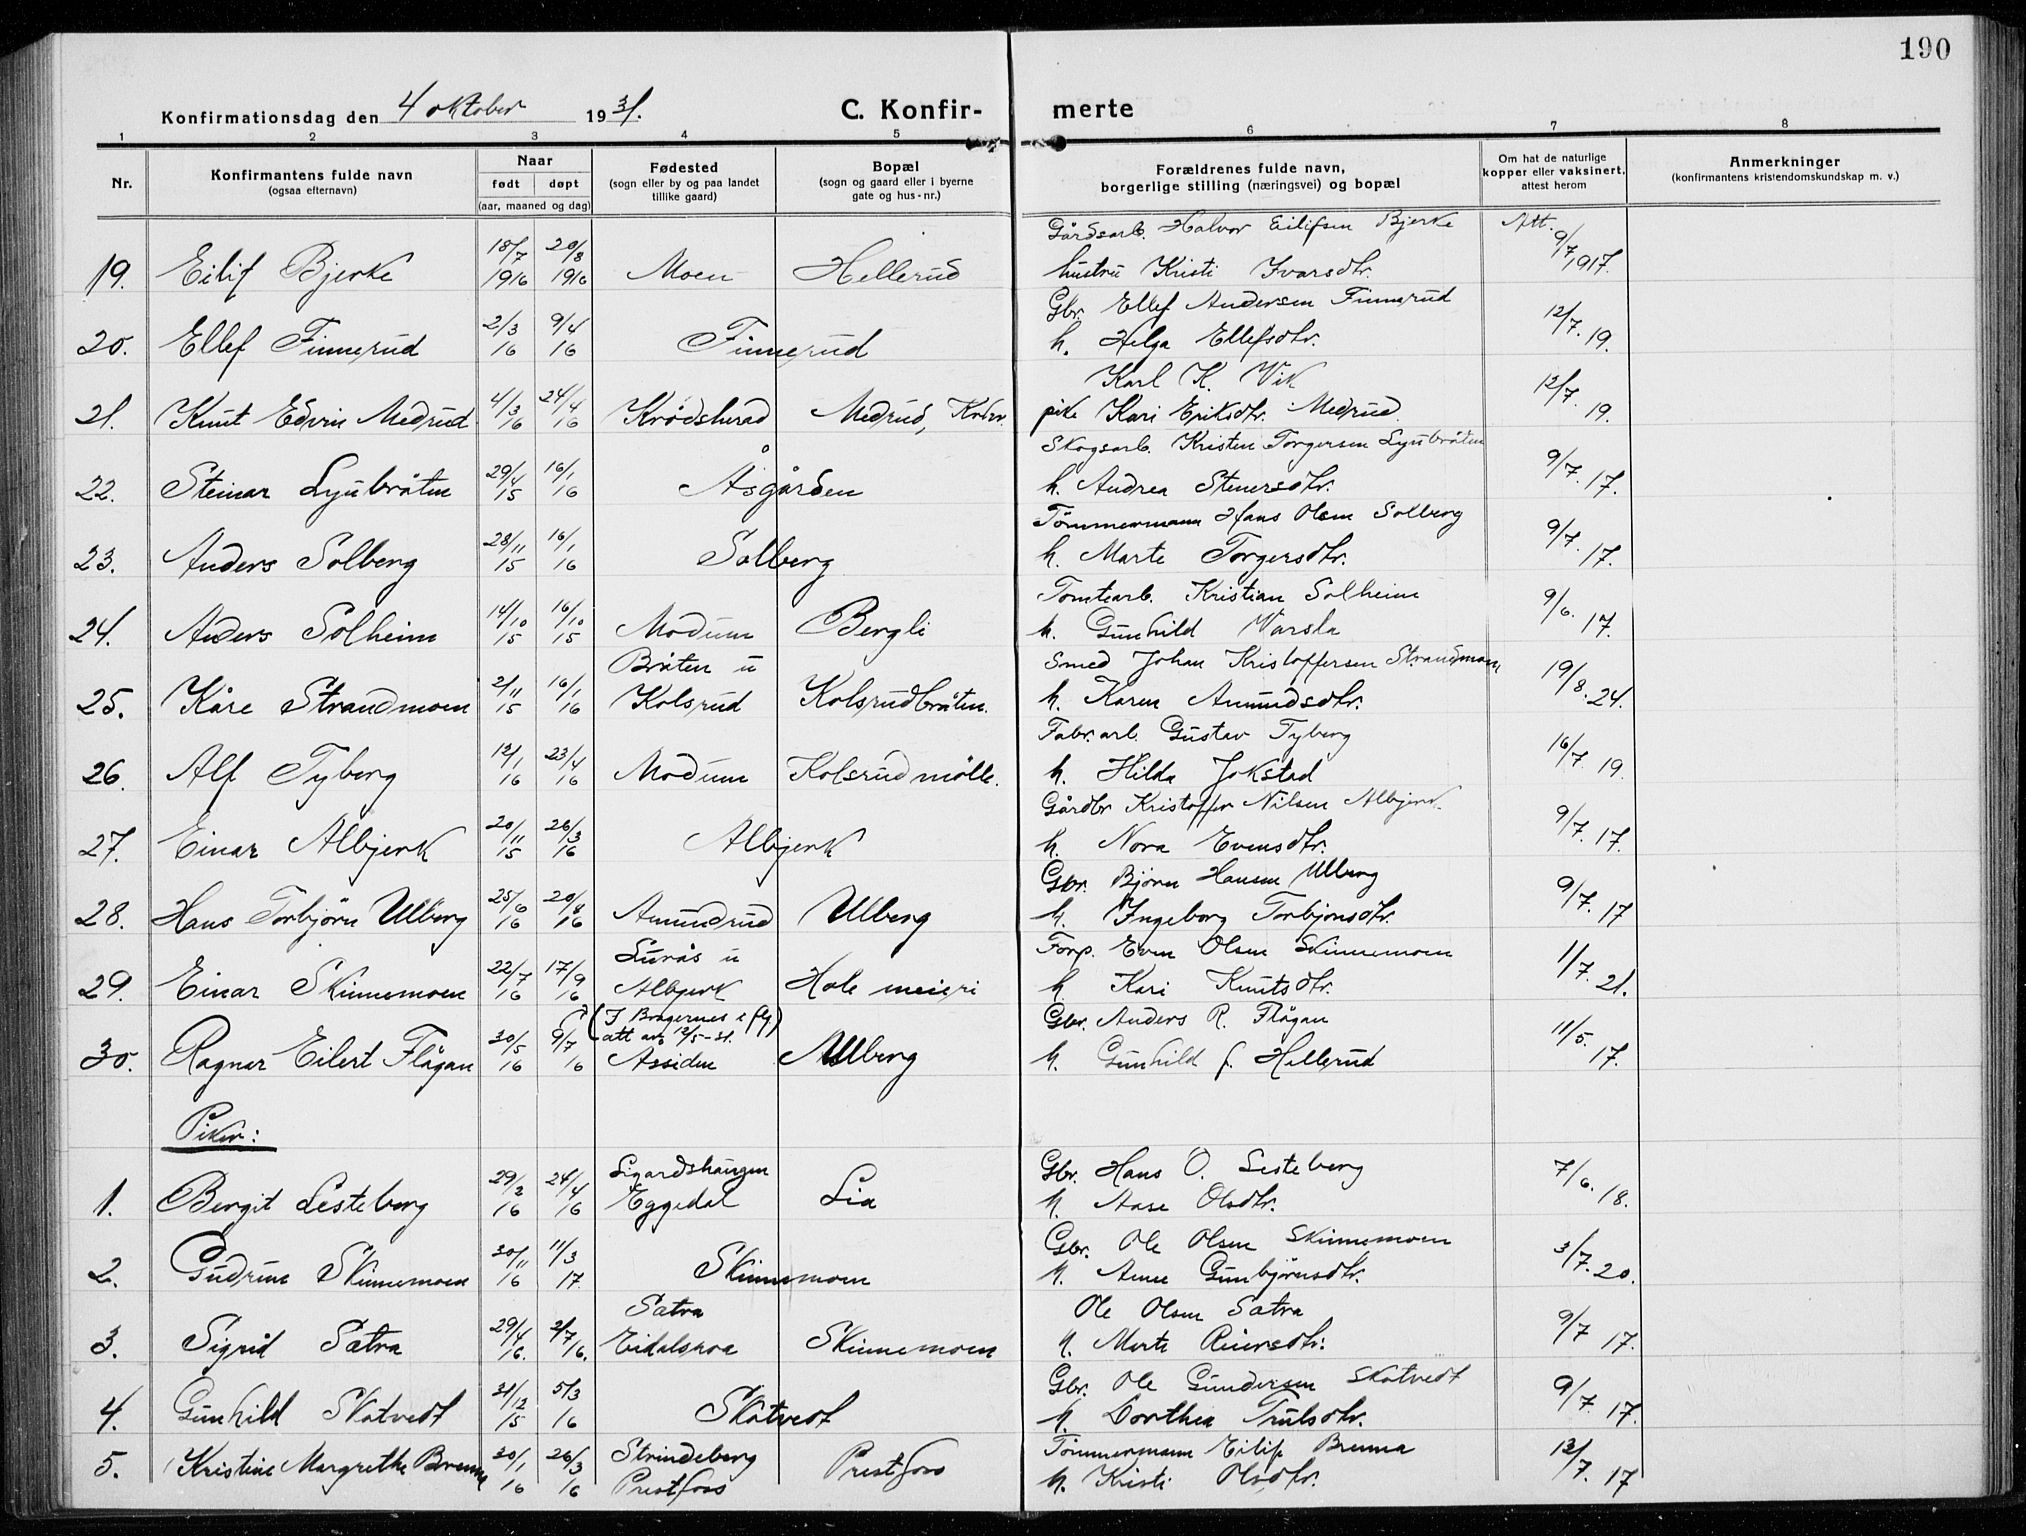 190
Konfirmationsdag den 4 oktober 1931.
C. Konfirmerte
1 2 3 4 5 6 7 8
Nr.
Konfirmantens fulde navn
(ogsaa efternavn)
Naar
født døpt
(aar, maaned og dag)
Fødested
(sogn eller by og paa landet
tillike gaard)
Bopæl
(sogn og gaard eller i byerne
gate og hus-nr.)
Forældrenes fulde navn,
borgerlige stilling (næringsvei) og bopæl
Om hat de naturlige
kopper eller vaksinert,
attest herom
Anmerkninger
(konfirmantens kristendomskundskap m. v.)
Gårdsarb. Halvor Eilifsen Bjerke Att.
19. Eilif Bjerke 18/7 1916 20/8 1916 Moen Hellerud hustru Kristi Ivarsdtr. 9/7 1917.
Gbr. Ellef Andersen Finnerud
20. Ellef Finnerud 2/3 16 9/4 16 Finnerud h. Helga Ellefsdtr. 12/7. 19.
Karl K. Vik
21. Knut Edvin Medrud 4/3 16 24/4 16 Krødsherad Medrud, pike Kari Eriksdtr. Medrud 12/7. 19.
Skogsarb. Kristen Torgersen Ljubråten
22. Steinar Ljubråten 29/4 15 16/1 16 Åsgården h. Andrea Stenersdtr. 9/7. 17.
Tømmermann Hans Olsen Solberg
23. Anders Solberg 28/11 15 16/1 16 Solberg h. Marte Torgersdtr. 9/7. 17.
Tomtearb. Kristian Solheim
24. Anders Solheim 14/10 15 16/10 15 Modum Bergli h. Gunhild Varsla 9/6. 17.
Bråten u Smed Johan Kristoffersen Strandmoen
25. Kåre Strandmoen 2/11 15 16/1 16 Kolsrud Kolsrudbråten. h. Karen Amundsdtr. 19/8. 24.
Fabr.arb. Gustav Tyberg
26. Alf Tyberg 12/1 16 23/4 16 Modum Kolsrudmølle. h. Hilda Jokstad 16/7 19.
Gårdbr Kristoffer Nilsen Albjerk.
27. Einar Albjerk 20/11 15 26/3 16 Albjerk h. Nora Evensdtr. 9/7. 17.
Gbr. Bjørn Hansen Ulberg
28. Hans Torbjørn Ulberg 25/6 16 20/8 16 Amundrud Ulberg h. Ingeborg Torbjønsdtr. 9/7. 17
Lurås u Forp. Even Olsen Skinnemoen
29. Einar Skinnemoen 22/7 16 17/9 16 Albjerk Hole meieri h. Kari Knutsdtr. 11/7. 21.
(I Bragernes i flg. Gbr. Anders R. Flågan
att av 12/5-31.)
30. Ragnar Eilert Flågan 30/5 16 9/7 16 Assiden Ulberg h. Gunhild f. Hellerud 11/5. 17.
Piker:
Sigardshaugen Gbr. Hans O. Lesteberg
1. Bergit Lesteberg 29/2 16 24/4 16 Eggedal Lia h. Aase Olsdtr. 7/6. 18.
Gbr. Ole Olsen Skinnemoen
2. Gudrun Skinnemoen 30/11 16 11/3 17. Skinnemoen h. Anne Gunbjørnsdtr. 3/7. 20.
Satra Ole Olsen Satra
3. Sigrid Satra 29/4 16. 2/7 16. Eidalskroa Skinnemoen h. Marte Reiersdtr: 9/7 17.
Gbr. Ole Gundersen Skatvedt
4. Gunhild Skatvedt 31/12 15 5/3 16 Skatvedt h. Dorthea Trulsdtr. 9/7. 17.
Strindeberg Tømmermann Eilif Brenna
5. Kristine Margrethe Brenna 30/1 16 26/3 16 Prestfoss Prestfoss h. Kristi Olsdtr. 12/7. 17